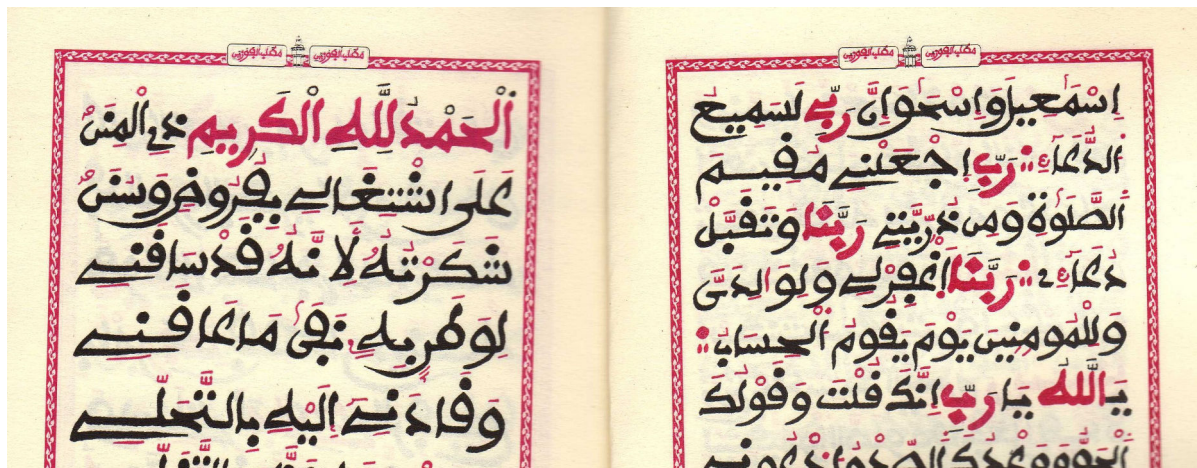 إِسْمَٰعِيلَ وَإِسْحَٰقَ إِنَّ رَبِّي لَسَمِيعُ
الدُّعَاءِ ؞ رَبِّ اِجْعَلْنِي مُقِيمَ
الصَّلَوٰةِ وَمِن ذُرِّيَّتِي رَبَّنَا وَتَقَبَّلْ
دُعَاءِ ؞ رَبَّنَا اَغْفِرْ لِي وَلِوَالِدَيَّ
وَلِلْمُومِنِينَ يَوْمَ يَقُومُ الْحِسَابُ ؞
يَا اَللَّهُ يَا رَبِّ إِنَّكَ قُلْتَ وَقَوْلُكَ
اَلْحَمْدُ لِلَّهِ الْكَرِيمِ ذِي الْمِنَنْ
عَلَى اشْتِغَالِي بِفُرُوضٍ وَسُنَنْ
شَكَرْتُهُ لِأَنَّهُ قَدْ سَاقَنِي
لِوَطَرِي بِهِ نَفَى مَا عَاقَنِي
وَقَادَنِي إِلَيْهِ بِالتَّحَلِّي